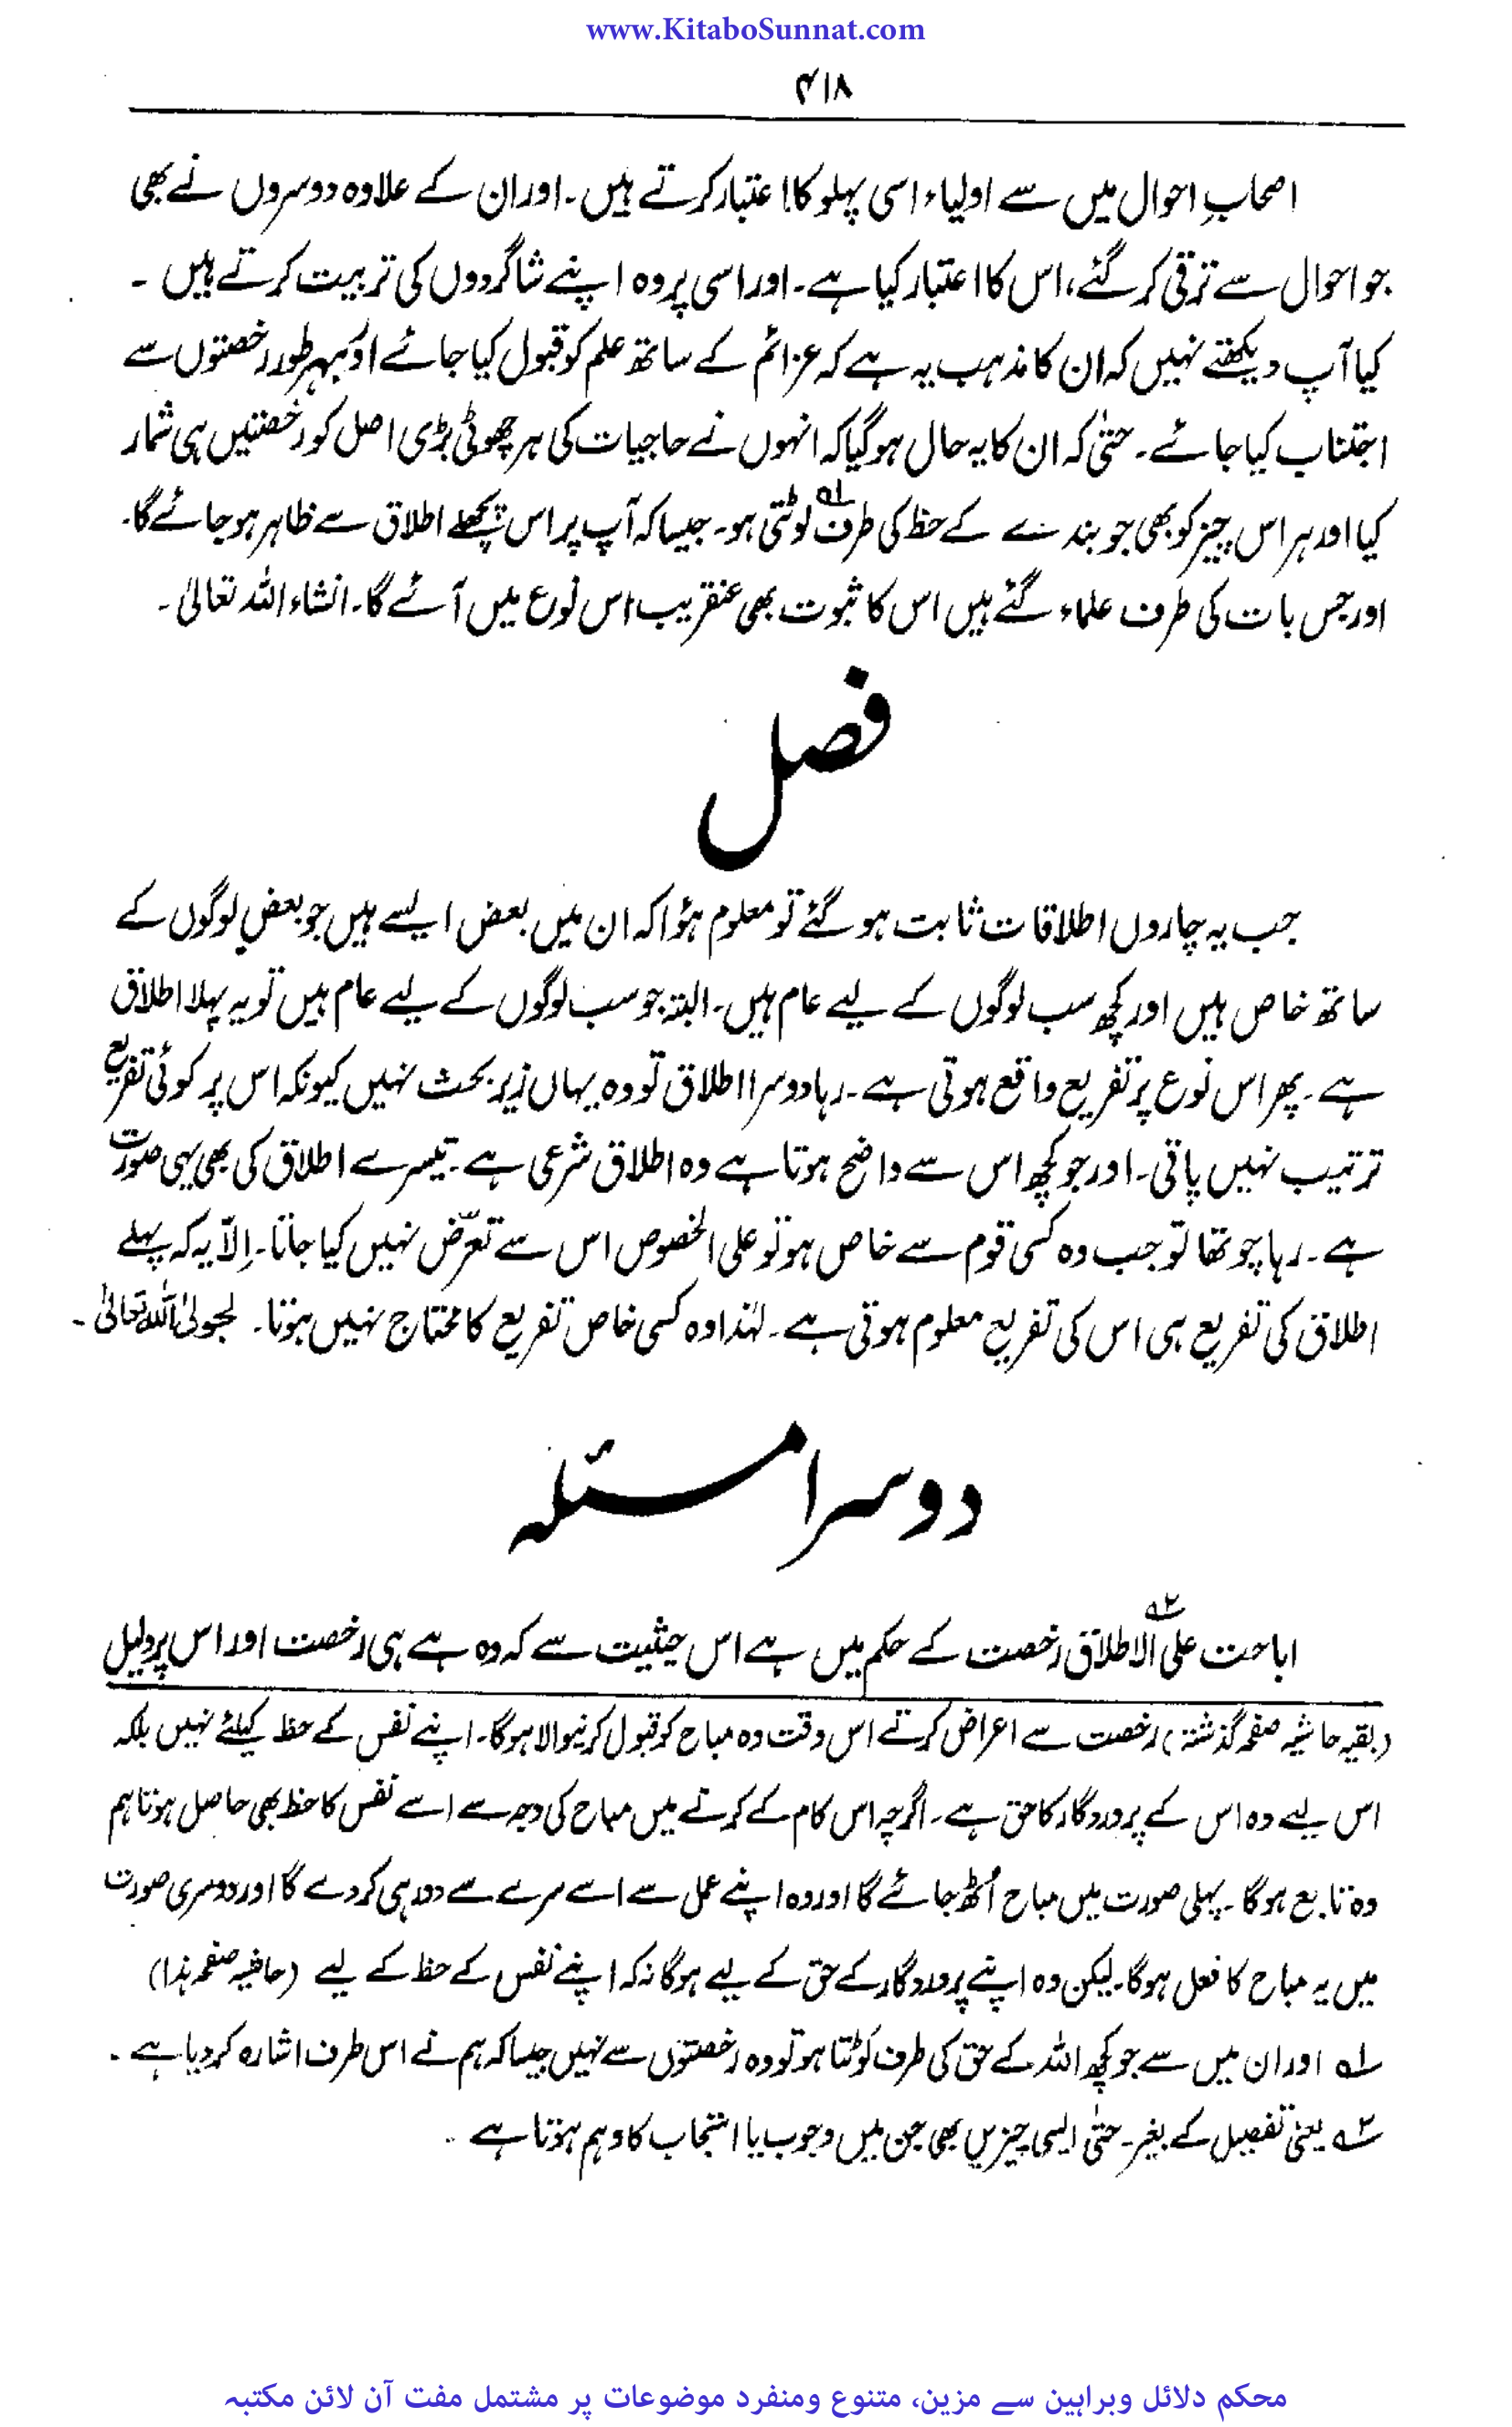 www.KitaboSunnat.com
۴۱۸
اصحابِ احوال میں سے اولیاء اسی پہلو کا اعتبار کرتے ہیں۔ اور ان کے علاوہ دوسروں نے بھی
جو احوال سے ترقی کر گئے، اس کا اعتبار کیا ہے۔ اور اسی پر وہ اپنے شاگردوں کی تربیت کرتے ہیں۔
کیا آپ دیکھتے نہیں کہ ان کا مذہب یہ ہے کہ عزائم کے ساتھ علم کو قبول کیا جائے اور بہر طور رخصتوں سے
اجتناب کیا جائے۔ حتیٰ کہ ان کا یہ حال ہو گیا کہ انہوں نے حاجیات کی ہر چھوٹی بڑی اصل کو رخصتیں ہی شمار
کیا اور ہر اس چیز کو بھی جو بندے کے حظ کی طرف لوٹتی ہو۔ ۱؎ جیسا کہ آپ پر اس پچھلے اطلاق سے ظاہر ہو جائے گا۔
اور جس بات کی طرف علماء گئے ہیں اس کا ثبوت بھی عنقریب اس نوع میں آئے گا۔ انشاء اللہ تعالیٰ۔
فصل
جب یہ چاروں اطلاقات ثابت ہو گئے تو معلوم ہؤا کہ ان میں بعض ایسے ہیں جو بعض لوگوں کے
ساتھ خاص ہیں اور کچھ سب لوگوں کے لیے عام ہیں۔ البتہ جو سب لوگوں کے لیے عام ہیں تو یہ پہلا اطلاق
ہے۔ پھر اس نوع پر تفریع واقع ہوتی ہے۔ رہا دوسرا اطلاق تو وہ یہاں زیر بحث نہیں کیونکہ اس پر کوئی تفریع
ترتیب نہیں پاتی۔ اور جو کچھ اس سے واضح ہوتا ہے وہ اطلاق شرعی ہے۔ تیسرے اطلاق کی بھی یہی صورت
ہے۔ رہا چوتھا تو جب وہ کسی قوم سے خاص ہو تو علی الخصوص اس سے تعرّض نہیں کیا جاتا۔ اِلّا یہ کہ پہلے
اطلاق کی تفریع ہی اس کی تفریع معلوم ہوتی ہے۔ لہٰذا وہ کسی خاص تفریع کا محتاج نہیں ہوتا۔ بحول اللہ تعالیٰ۔
دوسرا مسئلہ
اباحت علی الاطلاق ۲؎ رخصت کے حکم میں ہے اس حیثیت سے کہ وہ ہے ہی رخصت اور اس پر دلیل
(بقیہ حاشیہ صفحہ گذشتہ) رخصت سے اعراض کرتے اس وقت وہ مباح کو قبول کرنیوالا ہوگا۔ اپنے نفس کے حظ کیلئے نہیں بلکہ
اس لیے وہ اس کے پروردگار کا حق ہے۔ اگرچہ اس کام کے کرتے میں مباح کی وجہ سے اسے نفس کا حظ بھی حاصل ہوتا ہم
وہ تابع ہوگا۔ پہلی صورت میں مباح اُٹھ جائے گا اور وہ اپنے عمل سے اسے سرے سے دور ہی کر دے گا اور دوسری صورت
میں یہ مباح کا فعل ہوگا۔ لیکن وہ اپنے پروردگار کے حق کے لیے ہوگا نہ کہ اپنے نفس کے حظ کے لیے (حاشیہ صفحہ ہذا)
۱؎ اور ان میں سے جو کچھ اللہ کے حق کی طرف لوٹتا ہو تو وہ رخصتوں سے نہیں جیسا کہ ہم نے اس طرف اشارہ کر دیا ہے۔
۲؎ یعنی تفصیل کے بغیر۔ حتیٰ ایسی چیزیں بھی جن میں وجوب یا استحباب کا وہم ہوتا ہے۔
محکم دلائل وبراہین سے مزین، متنوع ومنفرد موضوعات پر مشتمل مفت آن لائن مکتبہ